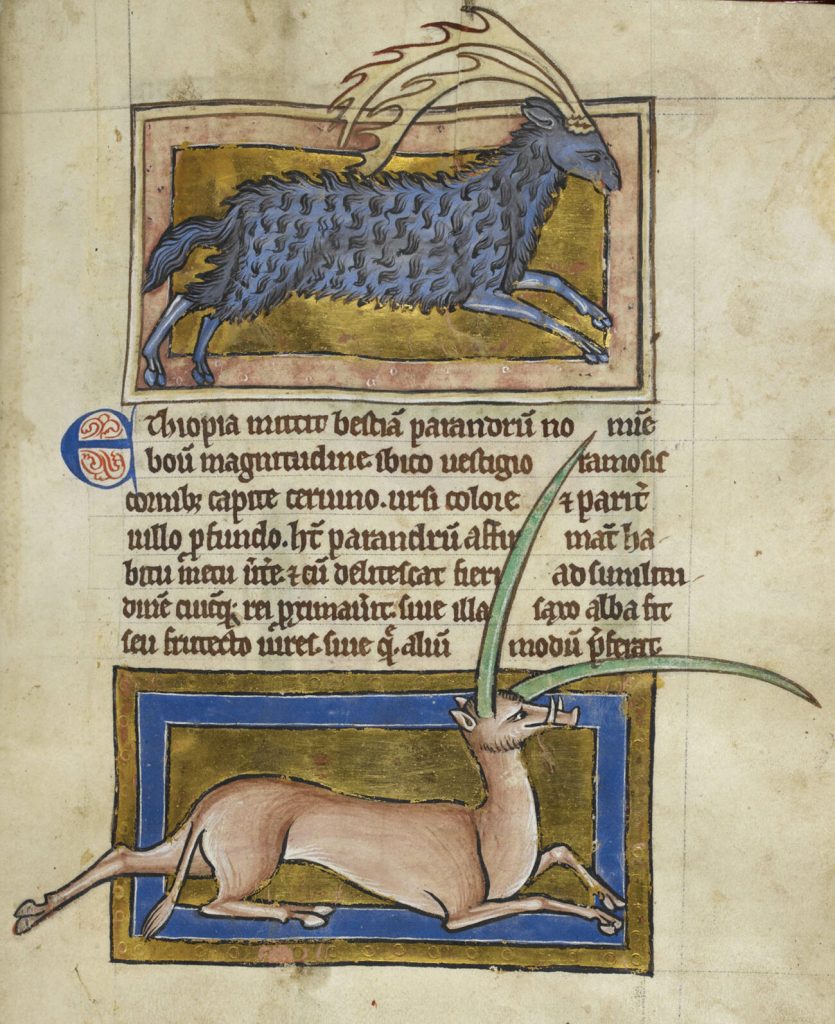 Ethiopia mittit bestiā parandrū no mīe
boū magnitudine. ibico uestigio ramosis
cornibꝫ capite ceruino. ursi colore ⁊ parit̄
uillo ꝓfundo. hc̄ parandrū affir mat̄ ha
bitu metu ūtе̄. ⁊ cū delitescat fieri ad similitu
dinē cuicūqꝫ rei ꝓximauīt. siue illa saxo alba sit
seu frutecto uiret. siue q̄ aliū modū p̄ferat.